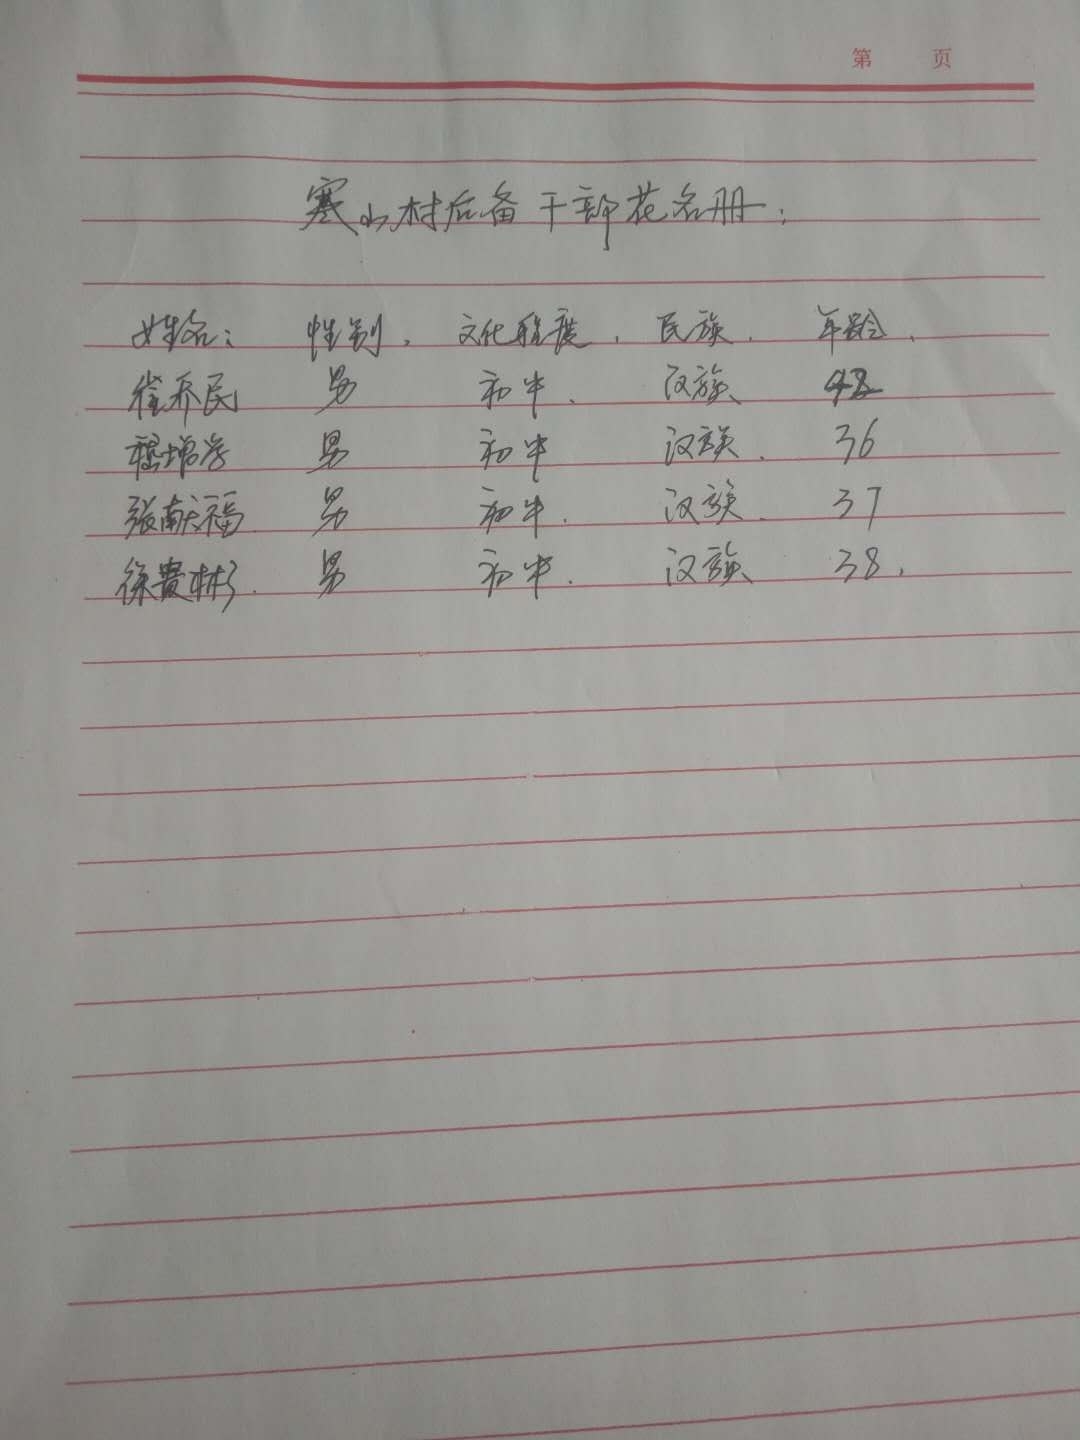 第 页
寒山村后备干部花名册:
姓名: 性别. 文化程度. 民族. 年龄.
崔乔民 男 初中. 汉族 42
穆增学 男 初中 汉族. 36
张献福. 男 初中. 汉族. 37
徐贵彬. 男 初中. 汉族 38.